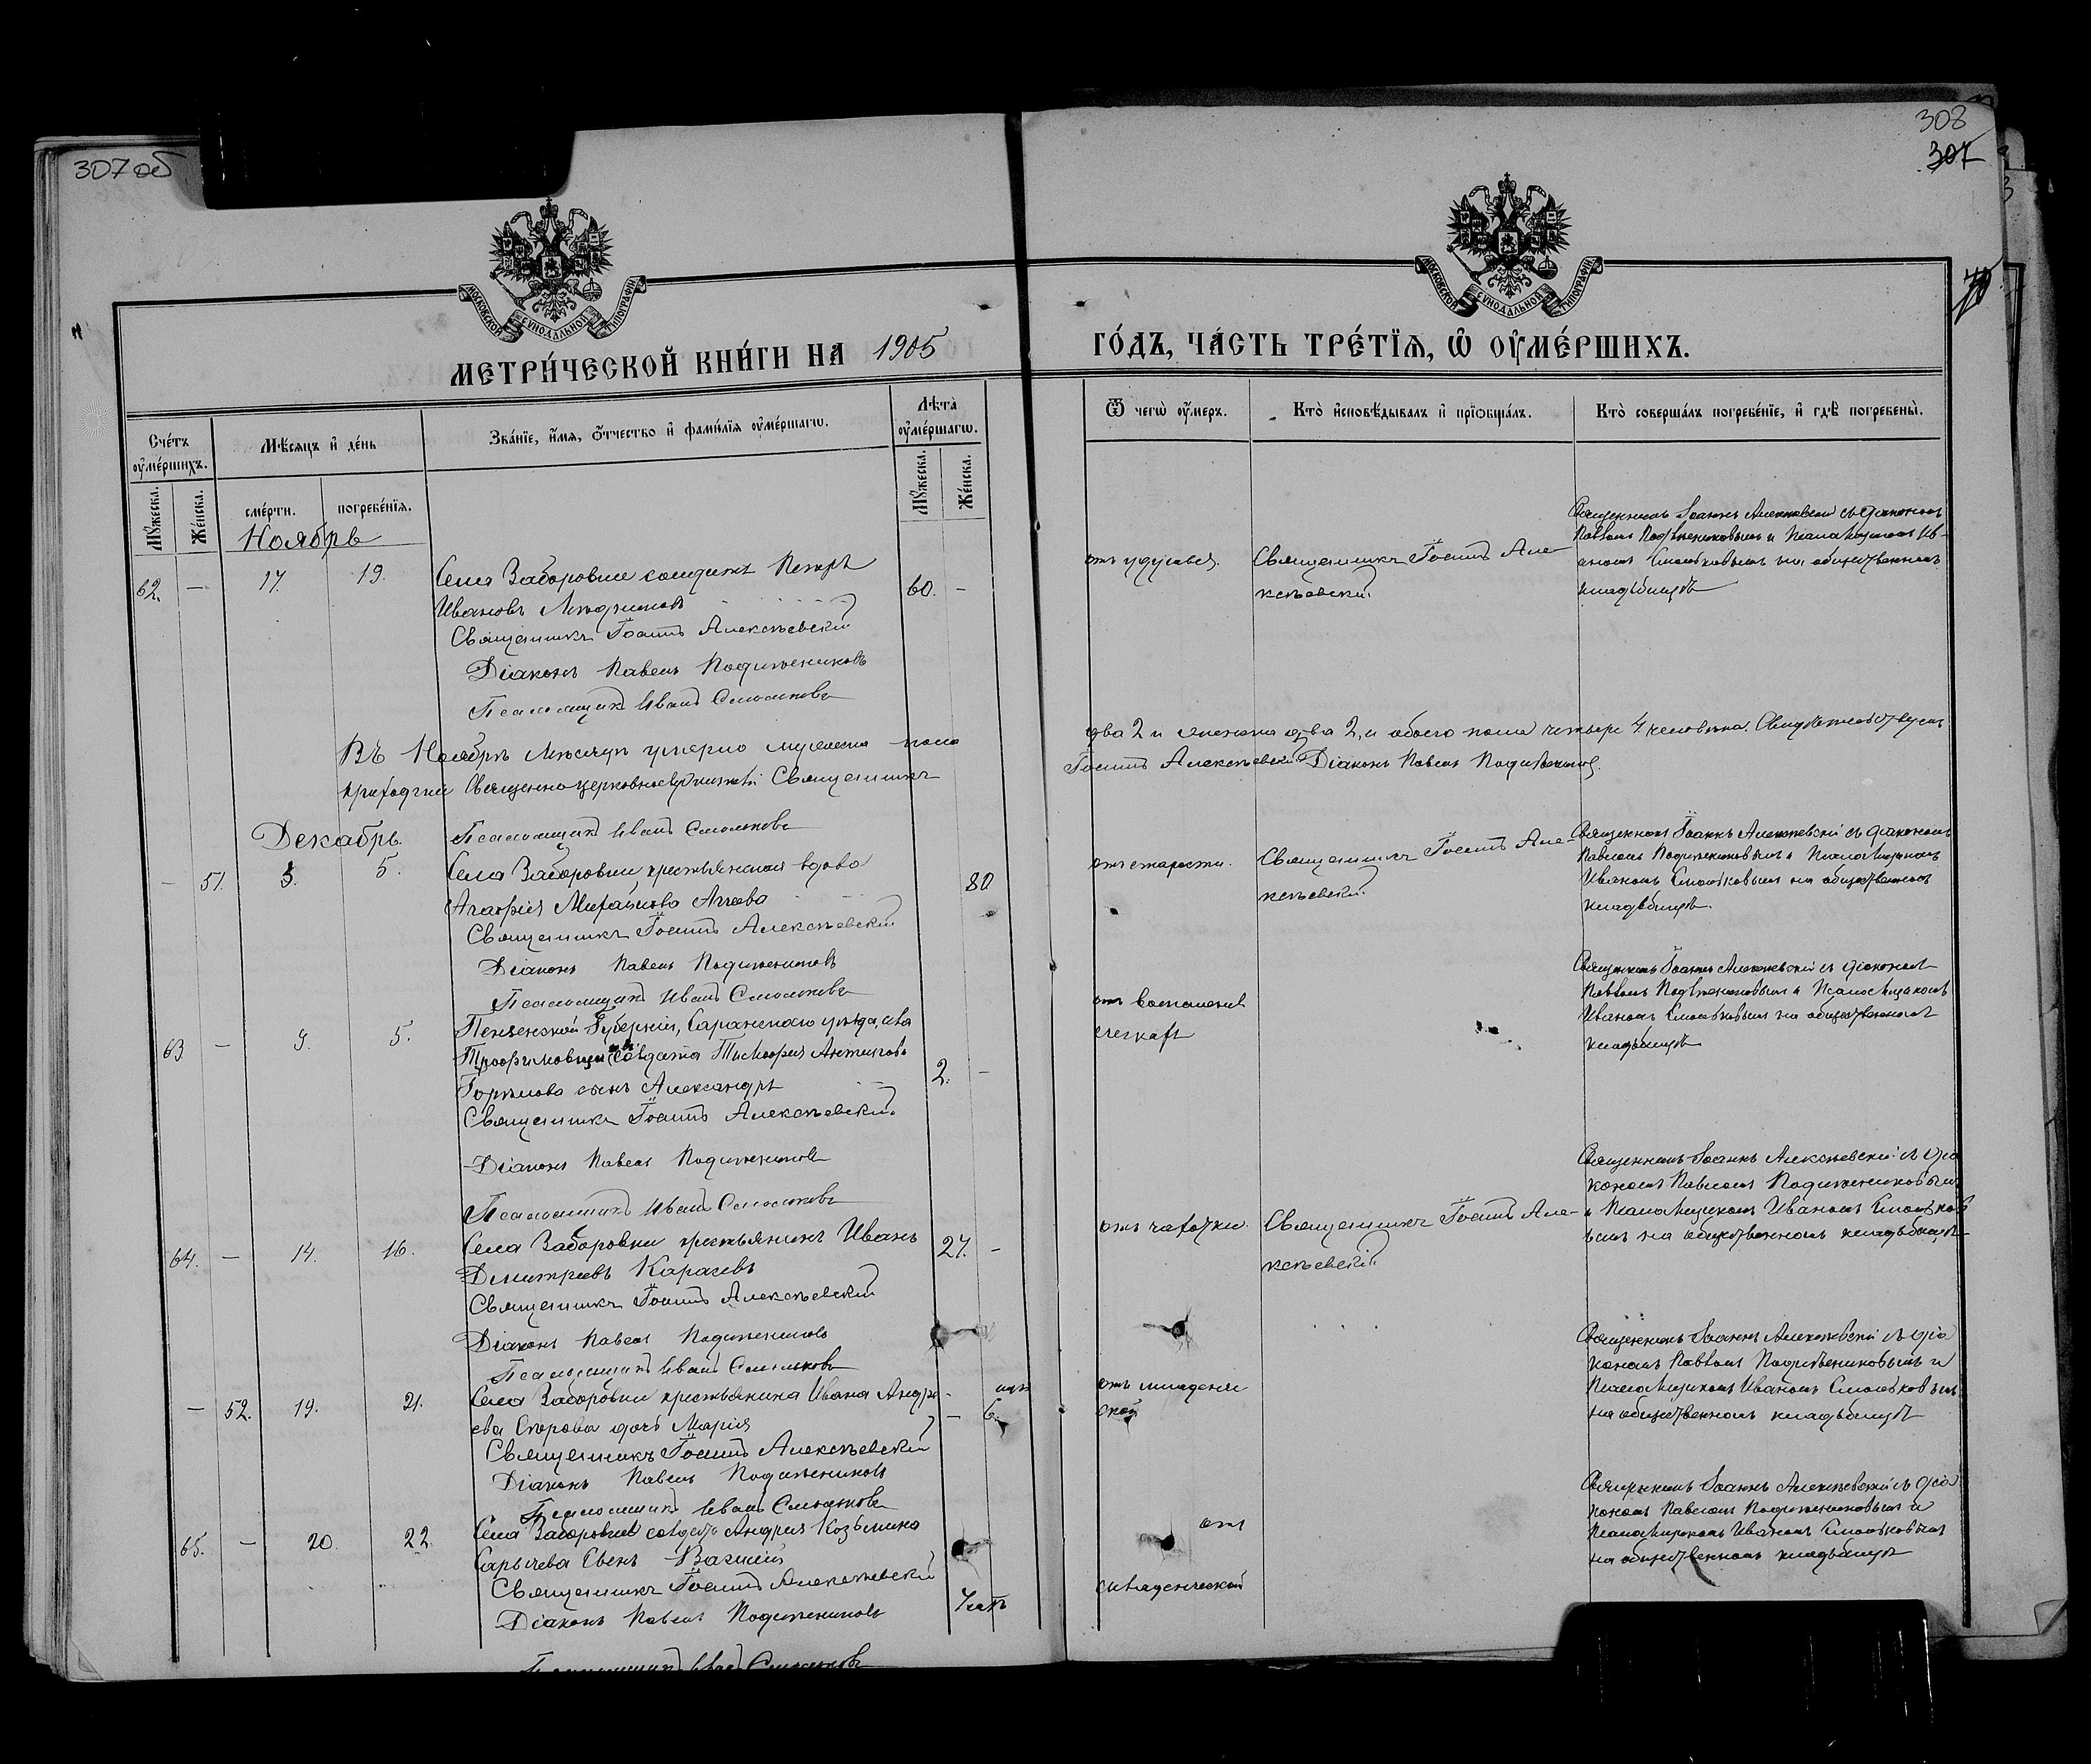 307 об
308
307
70
МОСКОВСКОЙ СѴНОДАЛЬНОЙ ТИПОГРАФІИ
МОСКОВСКОЙ СѴНОДАЛЬНОЙ ТИПОГРАФІИ
МЕТРИ́ЧЕСКОЙ КНИ́ГИ НА 1905
ГО́ДЪ, ЧА́СТЬ ТРЕ́ТЇѦ, Ѡ ОУ҆МЕ́РШИХЪ.
Сче́тъ оу҆ме́ршихъ.
Мѣ́сяцъ и҆ де́нь
Зва́нїе, и҆́мя, ѻ҆́тчество и҆ фами́лїя оу҆ме́ршагѡ.
Лѣта̀ оу҆ме́ршагѡ.
Мꙋ́жеска.
Же́нска.
сме́рти.
погребе́нїя.
Мꙋ́жеска.
Же́нска.
Ѿ чегѡ̀ оу҆́меръ.
Кто̀ и҆сповѣ́дывалъ и҆ прїѻбща́лъ.
Кто̀ соверша́лъ погребе́нїе, и҆ гдѣ̀ погребены̀.
Ноябрь
62. — 17. 19. Села Заборовки солдатъ Петръ 60. —
Ивановъ
Священникъ Іоаннъ Алексѣевскій
Діаконъ Павелъ Подиженниковъ
Псаломщикъ Иванъ Смольковъ
отъ удушья.
Священникъ Іоаннъ Але-
ксѣевскій.
Священникъ Іоаннъ Алексѣевскій съ діакономъ
Павломъ Подиженниковымъ и Псаломщикомъ Ив-
аномъ Смольковымъ на общественномъ
кладбищѣ
Въ Ноябрѣ мѣсяцѣ умерло мужеска пола
два 2 и женска два 2, и обоего пола четыре 4 человѣка.
приходскій Священно-церковнослужители: Священникъ
Іоаннъ Алексѣевскій Діаконъ Павелъ Подиженниковъ.
Псаломщикъ Иванъ Смольковъ
Декабрь.
— 51. 3. 5. Села Заборовки крестьянская вдова 80
Агафія Михайлова Агеева
Священникъ Іоаннъ Алексѣевскій
Діаконъ Павелъ Подиженниковъ
Псаломщикъ Иванъ Смольковъ
отъ старости.
Священникъ Іоаннъ Але-
ксѣевскій.
Священникъ Іоаннъ Алексѣевскій съ діакономъ
Павломъ Подиженниковымъ и Псаломщикомъ
Иваномъ Смольковымъ на общественномъ
кладбищѣ.
63 — 5. Пензенской Губерніи, Саранскаго уѣзда, села
солдата Тимофея
сынъ Александръ 2. —
Священникъ Іоаннъ Алексѣевскій.
Діаконъ Павелъ Подиженниковъ
Псаломщикъ Иванъ Смольковъ
отъ
Священникъ Іоаннъ Алексѣевскій съ діакономъ
Павломъ Подиженниковымъ и Псаломщикомъ
Иваномъ Смольковымъ на общественномъ
кладбищѣ
64. — 14. 16. Села Заборовки крестьянинъ Иванъ 27. —
Димитріевъ Карасевъ
Священникъ Іоаннъ Алексѣевскій
Діаконъ Павелъ Подиженниковъ
Псаломщикъ Иванъ Смольковъ
отъ чахотки.
Священникъ Іоаннъ Але-
ксѣевскій.
Священникъ Іоаннъ Алексѣевскій съ діа
кономъ Павломъ Подиженниковымъ
и Псаломщикомъ Иваномъ Смольков
ымъ на общественномъ кладбищѣ
— 52. 19. 21. Села Заборовки крестьянина Ивана Андре-
ева Егорова дочь Марія — 6.
Священникъ Іоаннъ Алексѣевскій
Діаконъ Павелъ Подиженниковъ
Псаломщикъ Иванъ Смольковъ
отъ младенче
ской
Священникъ Іоаннъ Алексѣевскій съ діа
кономъ Павломъ Подиженниковымъ и
Псаломщикомъ Иваномъ Смольковымъ
на общественномъ кладбищѣ
65. — 20. 22. Села Заборовки солдата Андрея Козьмина
Сарычева сынъ Василій
Священникъ Іоаннъ Алексѣевскій
Діаконъ Павелъ Подиженниковъ
Псаломщикъ Иванъ Смольковъ
отъ
младенческой
Священникъ Іоаннъ Алексѣевскій съ діа
кономъ Павломъ Подиженниковымъ и
Псаломщикомъ Иваномъ Смольковымъ
на общественномъ кладбищѣ